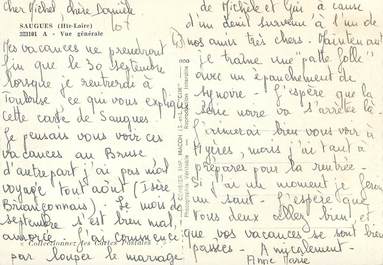 cher Michel chère Danièle
SAUGUES (Hte-Loire)
323101 A - Vue générale
Mes vacances ne prendront
fin que le 30 septembre
lorsque je rentrerai à
Toulouse ce qui vous explique
cette carte de Saugues.
Je pensais vous voir ces
vacances au Brusc
d'autre part j'ai pas mal
voyagé tout août (Isère
Briançonnais). Le mois de
septembre s'est bien mal
amorcé. J'ai commencé
Collectionnez les Cartes Postales
par louper le mariage
de Michèle et Gui à cause
d'un deuil survenu à l'un de
nos amis très chers. Maintenant
je traîne une "patte folle"
avec un épanchement de
synovie. J'espère que la
série noire va s'arrêter là.
J'aimerais bien vous voir à
Hyères, mais j'ai tant à
préparer pour la rentrée.
Si j'ai un moment je ferai
un saut. J'espère que
vous deux allez bien, et
que vos vacances se sont bien
passées. Amicalement.
Anne Marie